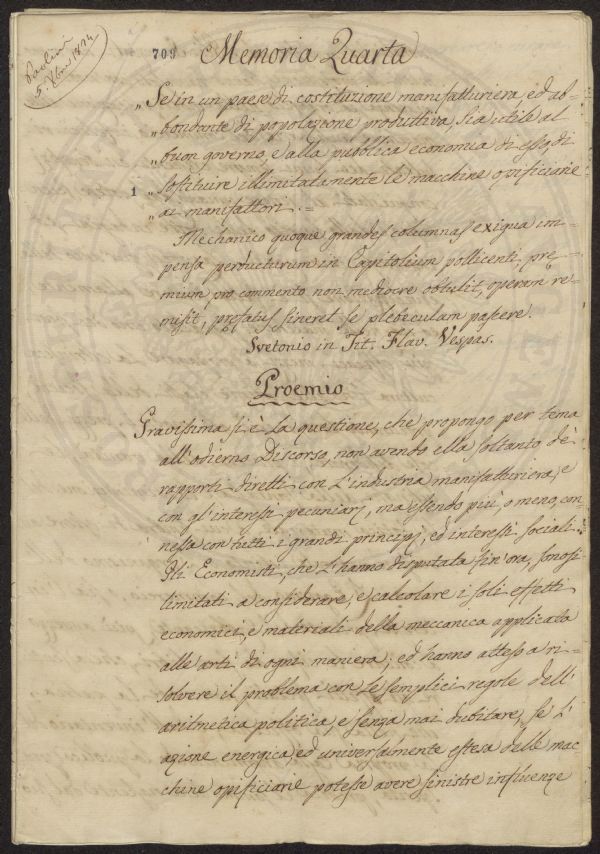 Paolini
5. Xbre 1824
709 Memoria Quarta
„Se in un paese di costituzione manifatturiera, ed ab-
„bondante di popolazione produttiva, sia utile al
„buon governo, e alla pubblica economia di esso, di
1 „sostituire illimitatamente le macchine opificiarie
„ai manifattori.=
Mechanico quoque grandes columnas exigua im-
pensa perducturum in Capitolium pollicenti, præ-
mium pro commento non mediocre obtulit, operam re-
misit, præfatus sineret se plebeculam pascere.
Svetonio in Tit. Flav. Vespas.
Proemio
Gravissima si è la questione, che propongo per tema
all'odierno Discorso, non avendo ella soltanto de'
rapporti diretti con l'industria manifatturiera, e
con gl'interessi pecuniarj, ma essendo più, o meno, con-
nessa con tutti i grandi principj, ed interessi sociali.
Gli Economisti, che l'hanno disputata sin'ora, sonosi
limitati a considerare, e calcolare i soli effetti
economici, e materiali della meccanica applicata
alle arti di ogni maniera; ed hanno atteso a ri-
solvere il problema con le semplici regole dell'
aritmetica politica, e senza mai dubitare, se l'
azione energica, ed universalmente estesa delle mac-
chine opificiarie potesse avere sinistre influenze